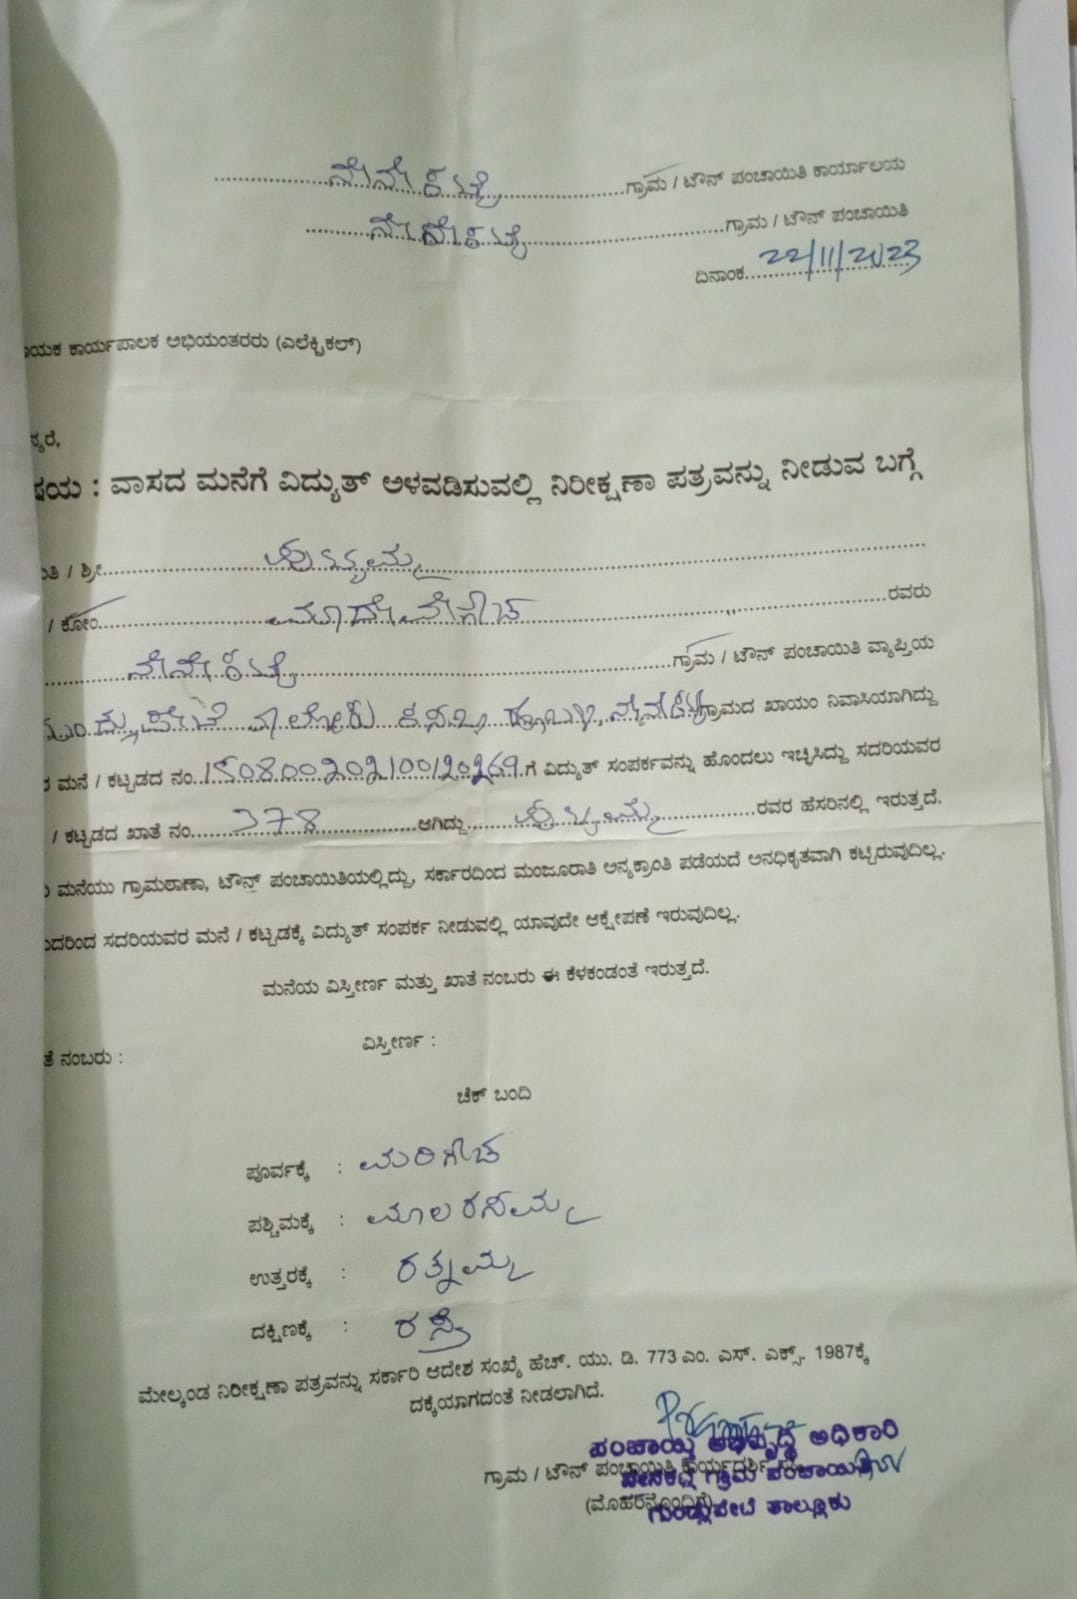 ನೇನೇಕಟ್ಟೆ ಗ್ರಾಮ / ಟೌನ್ ಪಂಚಾಯಿತಿ ಕಾರ್ಯಾಲಯ
ನೇನೇಕಟ್ಟೆ ಗ್ರಾಮ / ಟೌನ್ ಪಂಚಾಯಿತಿ
ದಿನಾಂಕ 22/11/2023
ಾಯಕ ಕಾರ್ಯಪಾಲಕ ಅಭಿಯಂತರರು (ಎಲೆಕ್ಟ್ರಿಕಲ್)
ನ್ಯರೆ,
ಷಯ : ವಾಸದ ಮನೆಗೆ ವಿದ್ಯುತ್ ಅಳವಡಿಸುವಲ್ಲಿ ನಿರೀಕ್ಷಣಾ ಪತ್ರವನ್ನು ನೀಡುವ ಬಗ್ಗೆ
ತಿ / ಶ್ರೀ
/ ಕೋಂ ರವರು
ನೇನೇಕಟ್ಟೆ ಗ್ರಾಮ / ಟೌನ್ ಪಂಚಾಯಿತಿ ವ್ಯಾಪ್ತಿಯ
ಗ್ರಾಮದ ಖಾಯಂ ನಿವಾಸಿಯಾಗಿದ್ದು
ರ ಮನೆ / ಕಟ್ಟಡದ ನಂ. 150800202100120269 ಗೆ ವಿದ್ಯುತ್ ಸಂಪರ್ಕವನ್ನು ಹೊಂದಲು ಇಚ್ಛಿಸಿದ್ದು ಸದರಿಯವರ
/ ಕಟ್ಟಡದ ಖಾತೆ ನಂ. 378 ಆಗಿದ್ದು ರವರ ಹೆಸರಿನಲ್ಲಿ ಇರುತ್ತದೆ.
ಮನೆಯು ಗ್ರಾಮಠಾಣಾ, ಟೌನ್ ಪಂಚಾಯಿತಿಯಲ್ಲಿದ್ದು, ಸರ್ಕಾರದಿಂದ ಮಂಜೂರಾತಿ ಅನ್ಯಕ್ರಾಂತಿ ಪಡೆಯದೆ ಅನಧಿಕೃತವಾಗಿ ಕಟ್ಟಿರುವುದಿಲ್ಲ.
ುದರಿಂದ ಸದರಿಯವರ ಮನೆ / ಕಟ್ಟಡಕ್ಕೆ ವಿದ್ಯುತ್ ಸಂಪರ್ಕ ನೀಡುವಲ್ಲಿ ಯಾವುದೇ ಆಕ್ಷೇಪಣೆ ಇರುವುದಿಲ್ಲ.
ಮನೆಯ ವಿಸ್ತೀರ್ಣ ಮತ್ತು ಖಾತೆ ನಂಬರು ಈ ಕೆಳಕಂಡಂತೆ ಇರುತ್ತದೆ.
ತೆ ನಂಬರು : ವಿಸ್ತೀರ್ಣ :
ಚೆಕ್ ಬಂದಿ
ಪೂರ್ವಕ್ಕೆ : ಮರಿಗೀಚ
ಪಶ್ಚಿಮಕ್ಕೆ :
ಉತ್ತರಕ್ಕೆ : ರತ್ನಮ್ಮ
ದಕ್ಷಿಣಕ್ಕೆ : ರಸ್ತೆ
ಮೇಲ್ಕಂಡ ನಿರೀಕ್ಷಣಾ ಪತ್ರವನ್ನು ಸರ್ಕಾರಿ ಆದೇಶ ಸಂಖ್ಯೆ ಹೆಚ್. ಯು. ಡಿ. 773 ಎಂ. ಎಸ್. ಎಕ್ಸ್. 1987ಕ್ಕೆ
ದಕ್ಕೆಯಾಗದಂತೆ ನೀಡಲಾಗಿದೆ.
ಪಂಚಾಯ್ತಿ ಅಭಿವೃದ್ಧಿ ಅಧಿಕಾರಿ
ಗ್ರಾಮ / ಟೌನ್ ಪಂಚಾಯಿತಿ ಕಾರ್ಯದರ್ಶಿ
ಗ್ರಾಮ ಪಂಚಾಯಿತಿ
(ಮೊಹರಿನೊಂದಿಗೆ)
ಗುಂಡ್ಲುಪೇಟೆ ತಾಲ್ಲೂಕು